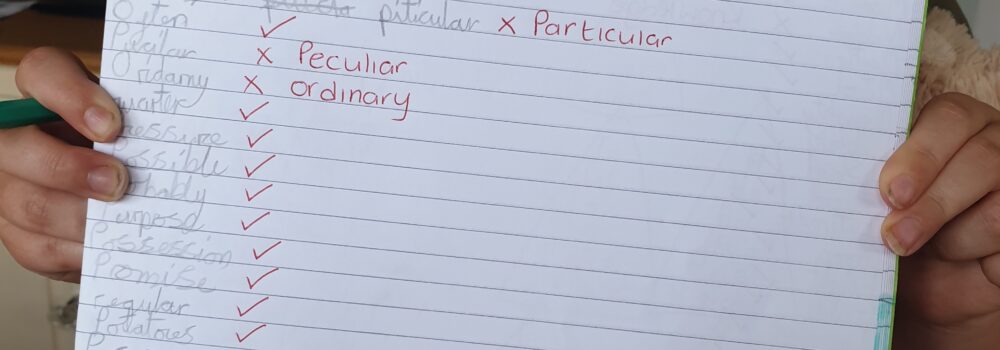 piticular x Particular
Often ✓
x Peculiar
Ordamy x ordinary
quarter ✓
ressure ✓
Possible ✓
✓
Purposd ✓
Possession ✓
Promise ✓
regular ✓
Potatoes ✓